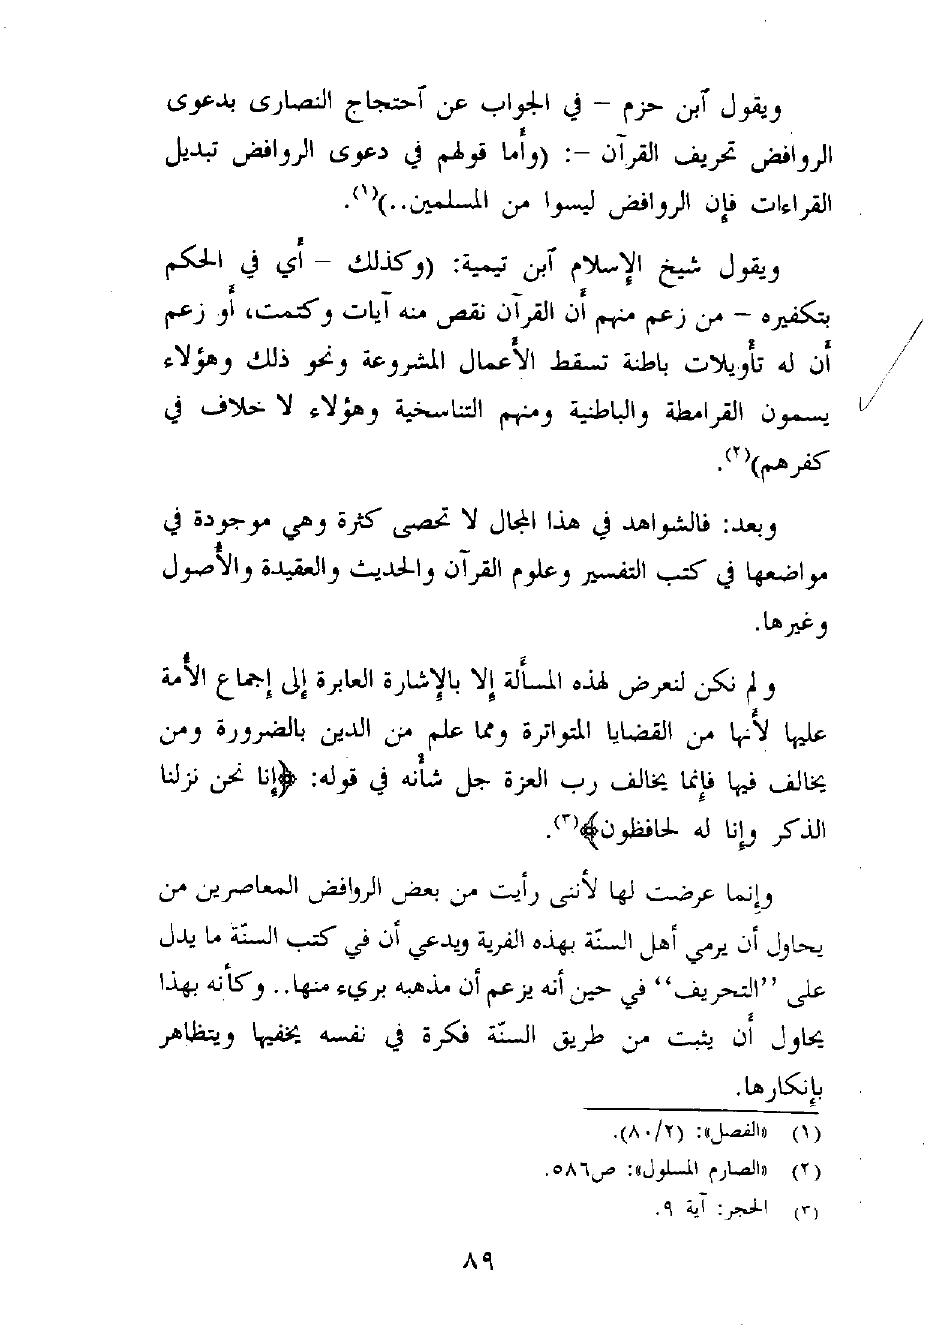 ويقول آبن حزم – في الجواب عن آحتجاج النصارى بدعوى
الروافض تحريف القرآن –: (وأما قولهم في دعوى الروافض تبديل
القراءات فإن الروافض ليسوا من المسلمين..)(١).
ويقول شيخ الإسلام آبن تيمية: (وكذلك – أي في الحكم
بتكفيره – من زعم منهم أن القرآن نقص منه آيات وكتمت، أو زعم
أن له تأويلات باطنة تسقط الأعمال المشروعة ونحو ذلك وهؤلاء
يسمون القرامطة والباطنية ومنهم التناسخية وهؤلاء لا خلاف في
كفرهم)(٢).
وبعد: فالشواهد في هذا المجال لا تحصى كثرة وهي موجودة في
مواضعها في كتب التفسير وعلوم القرآن والحديث والعقيدة والأصول
وغيرها.
ولم نكن لنعرض لهذه المسألة إلا بالإشارة العابرة إلى إجماع الأمة
عليها لأنها من القضايا المتواترة ومما علم من الدين بالضرورة ومن
يخالف فيها فإنما يخالف رب العزة جل شأنه في قوله: ﴿إنا نحن نزلنا
الذكر وإنا له لحافظون﴾(٣).
وإنما عرضت لها لأنني رأيت من بعض الروافض المعاصرين من
يحاول أن يرمي أهل السنّة بهذه الفرية ويدعي أن في كتب السنّة ما يدل
على "التحريف" في حين أنه يزعم أن مذهبه بريء منها.. وكأنه بهذا
يحاول أن يثبت من طريق السنّة فكرة في نفسه يخفيها ويتظاهر
بإنكارها.
(١) «الفصل»: (٨٠/٢).
(٢) «الصارم المسلول»: ص٥٨٦.
(٣) الحجر: آية ٩.
٨٩